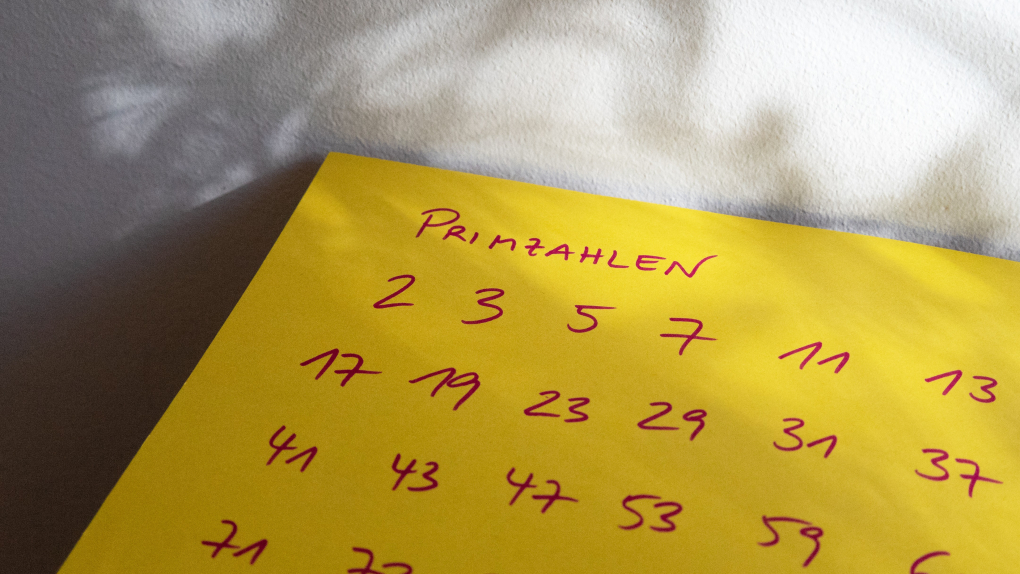 PRIMZAHLEN
2 3 5 7 11 13
17 19 23 29 31 37
41 43 47 53 59
71